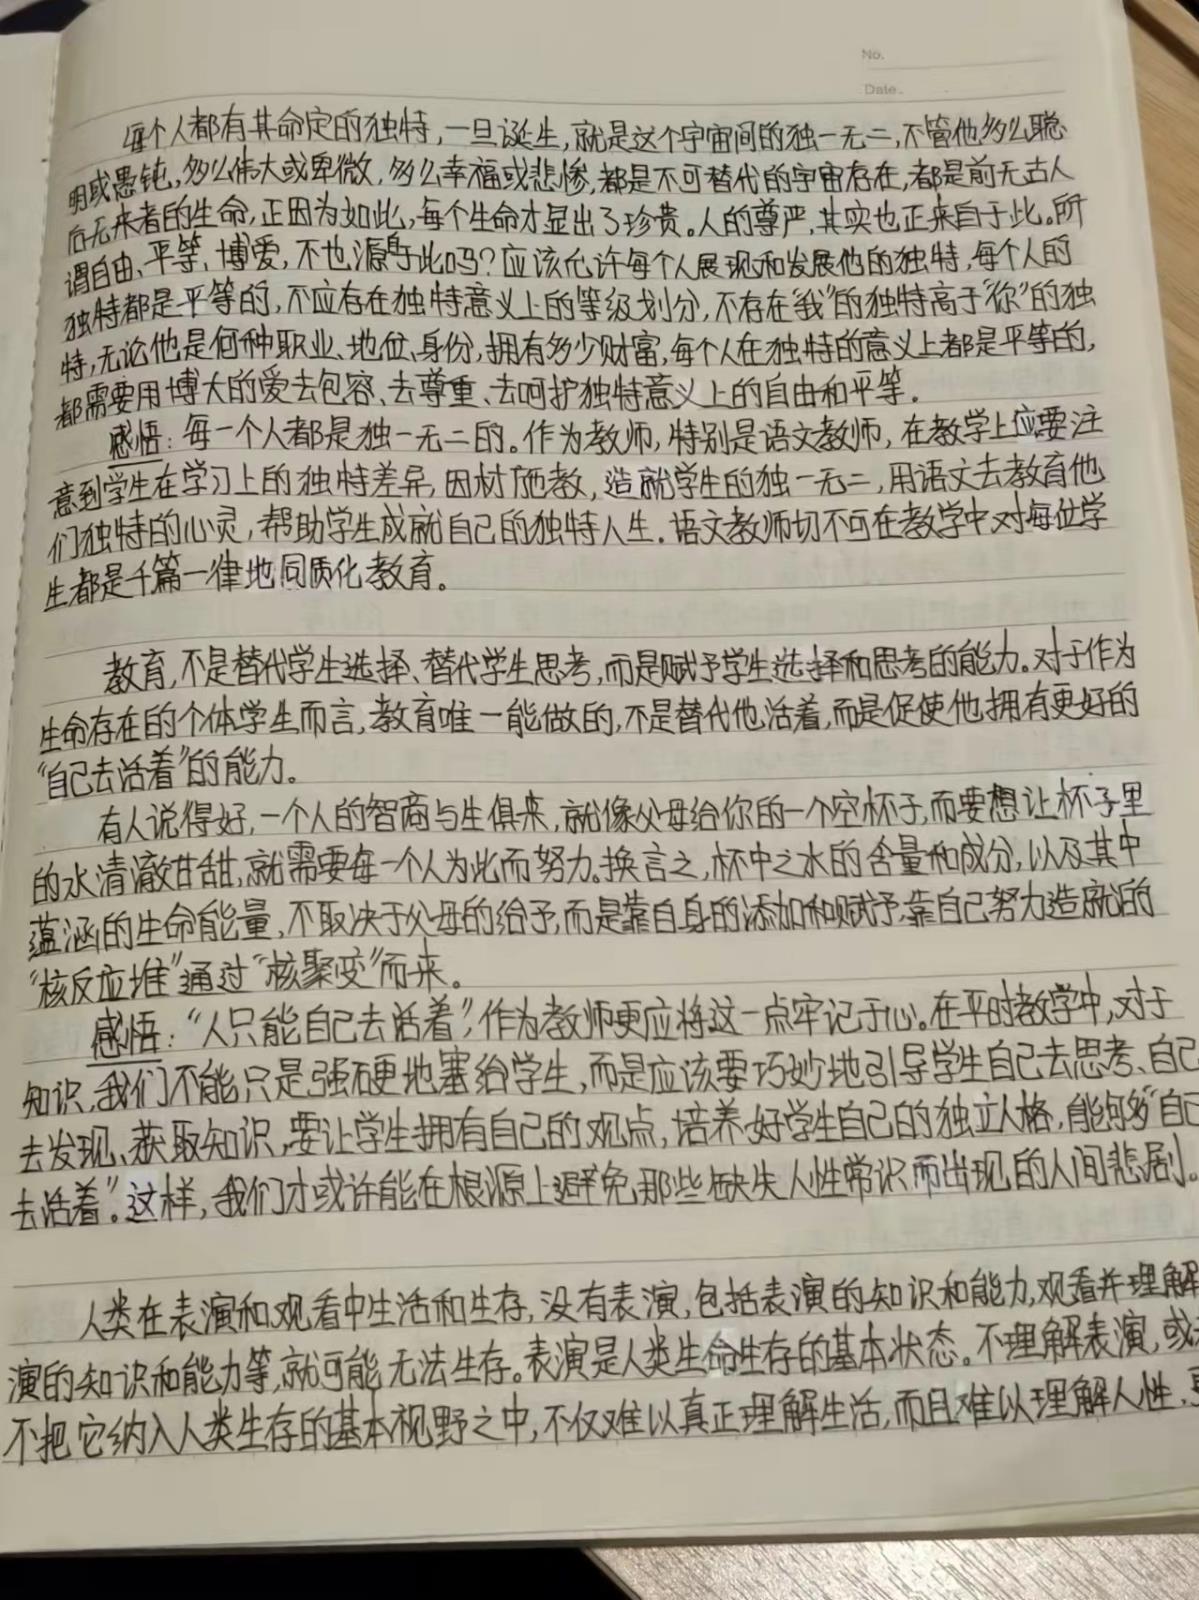 No.
Date.
每个人都有其命定的独特,一旦诞生,就是这个宇宙间的独一无二,不管他多么聪
明或愚钝,多么伟大或卑微,多么幸福或悲惨,都是不可替代的宇宙存在,都是前无古人
后无来者的生命,正因为如此,每个生命才显出了珍贵。人的尊严,其实也正来自于此。所
谓自由、平等、博爱,不也源自于此吗?应该允许每个人展现和发展他的独特,每个人的
独特都是平等的,不应存在独特意义上的等级划分,不存在“我”的独特高于“你”的独
特,无论他是何种职业、地位、身份,拥有多少财富,每个人在独特的意义上都是平等的,
都需要用博大的爱去包容、去尊重、去呵护独特意义上的自由和平等。
感悟:每一个人都是独一无二的。作为教师,特别是语文教师,在教学上应要注
意到学生在学习上的独特差异,因材施教,造就学生的独一无二,用语文去教育他
们独特的心灵,帮助学生成就自己的独特人生。语文教师切不可在教学中对每位学
生都是千篇一律地同质化教育。
教育,不是替代学生选择、替代学生思考,而是赋予学生选择和思考的能力。对于作为
生命存在的个体学生而言,教育唯一能做的,不是替代他活着,而是促使他拥有更好的
“自己去活着”的能力。
有人说得好,一个人的智商与生俱来,就像父母给你的一个空杯子,而要想让杯子里
的水清澈甘甜,就需要每一个人为此而努力。换言之,杯中之水的含量和成分,以及其中
蕴涵的生命能量,不取决于父母的给予,而是靠自身的添加和赋予,靠自己努力造就的
“核反应堆”通过“核聚变”而来。
感悟:“人只能自己去活着”,作为教师更应将这一点牢记于心。在平时教学中,对于
知识,我们不能只是强硬地塞给学生,而是应该要巧妙地引导学生自己去思考、自己
去发现、获取知识,要让学生拥有自己的观点,培养好学生自己的独立人格,能够“自己
去活着”。这样,我们才或许能在根源上避免那些缺失人性常识而出现的人间悲剧。
人类在表演和观看中生活和生存,没有表演,包括表演的知识和能力,观看并理解
演的知识和能力等,就可能无法生存。表演是人类生命生存的基本状态。不理解表演,或
不把它纳入人类生存的基本视野之中,不仅难以真正理解生活,而且难以理解人性,